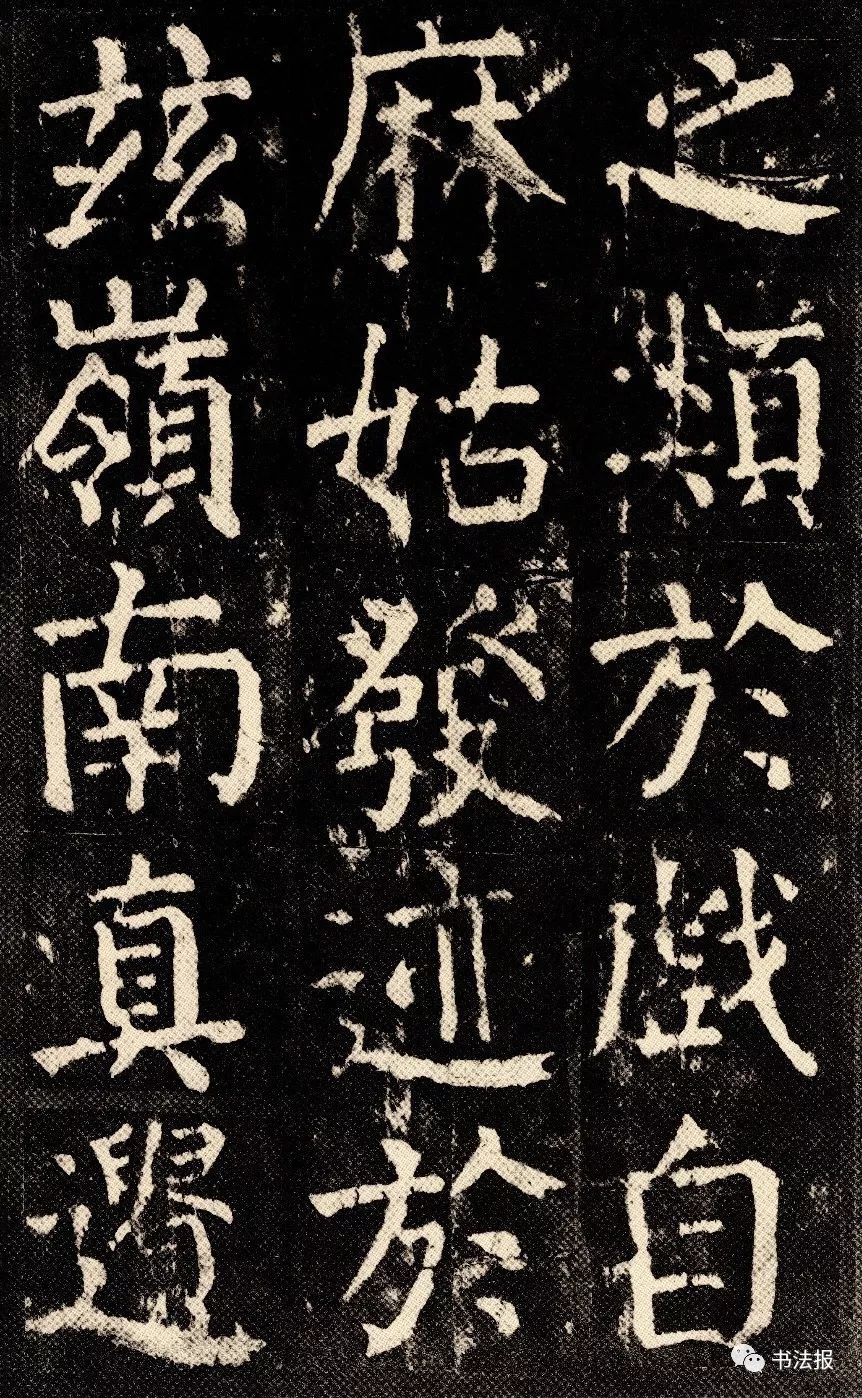 之類於戲自
麻姑發迹於
茲嶺南真遺
书法报